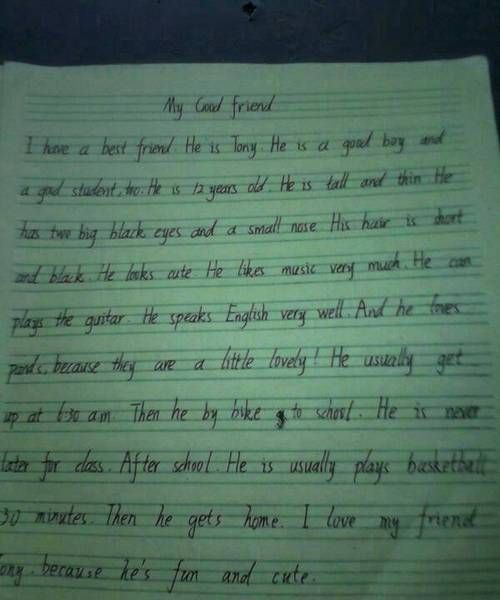 My Good friend
I have a best friend He is Tony. He is a good boy and
a good student, too. He is 12 years old. He is tall and thin He
has two big black eyes and a small nose His hair is short
and black. He looks cute He likes music very much. He can
plays the guitar. He speaks English very well. And he loves
pands, because they are a little lovely! He usually get
up at 6:30 am. Then he by bike to school. He is never
later for class. After school. He is usually plays basketball
30 minutes. Then he gets home. I love my friend
Tony. because he's fun and cute.